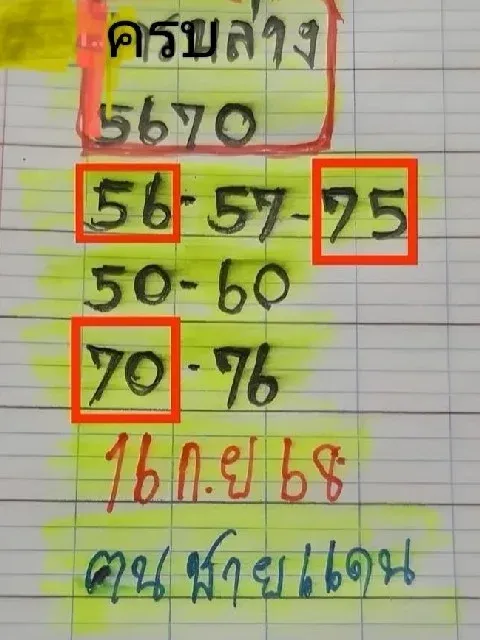 ครบล่าง
5670
56-57-75
50-60
70-76
16 ก.ย 68
คนชายแดน